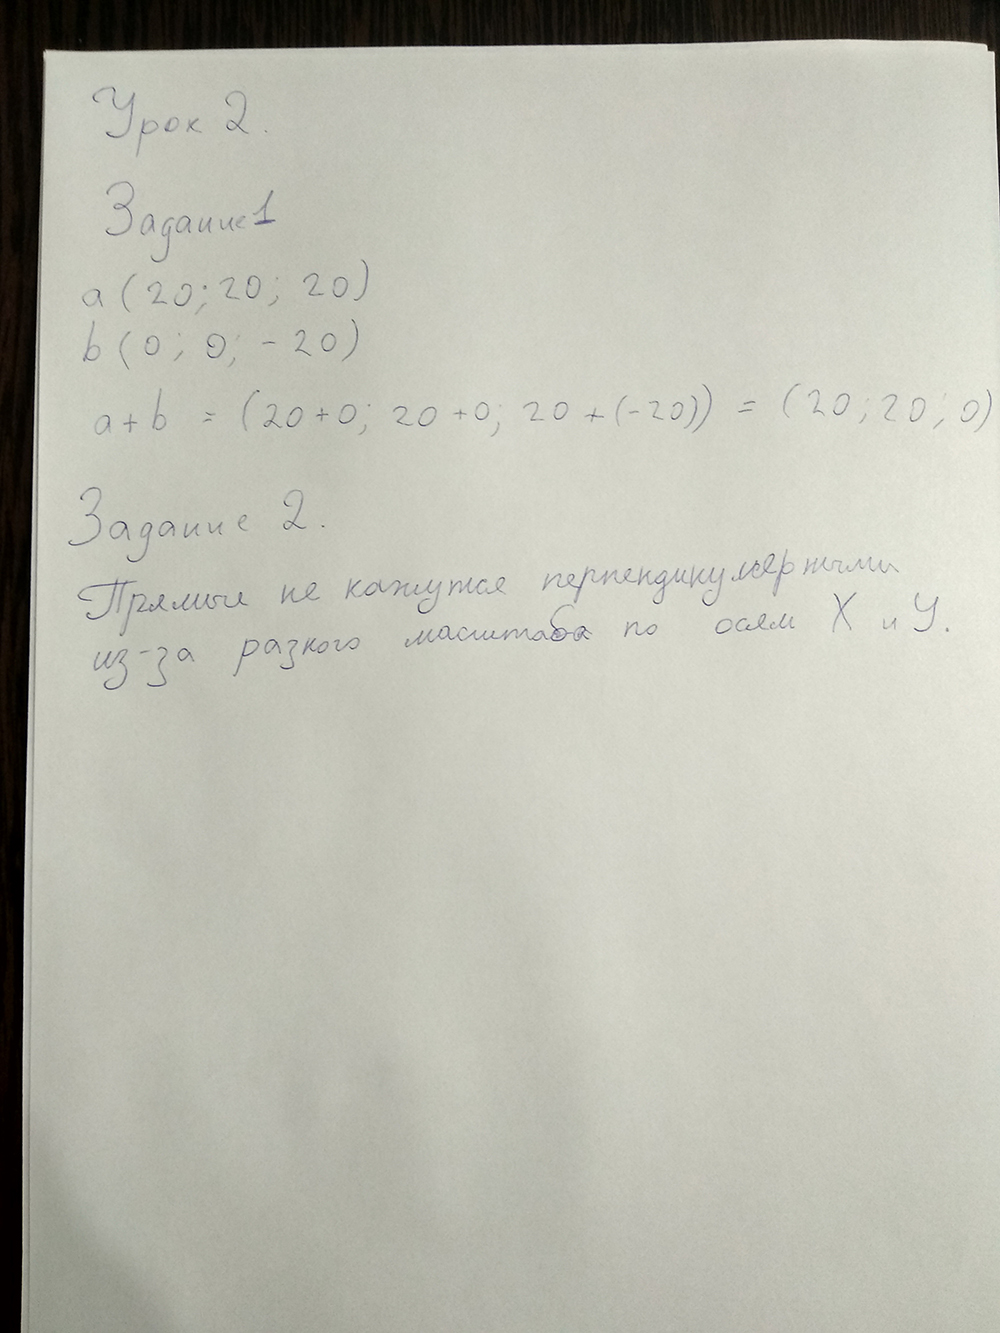 Урок 2.
Задание 1
a (20; 20; 20)
b (0; 0; -20)
a+b = (20+0; 20+0; 20+(-20)) = (20; 20; 0)
Задание 2.
Прямые не кажутся перпендикулярными
из-за разного масштаба по осям X и У.